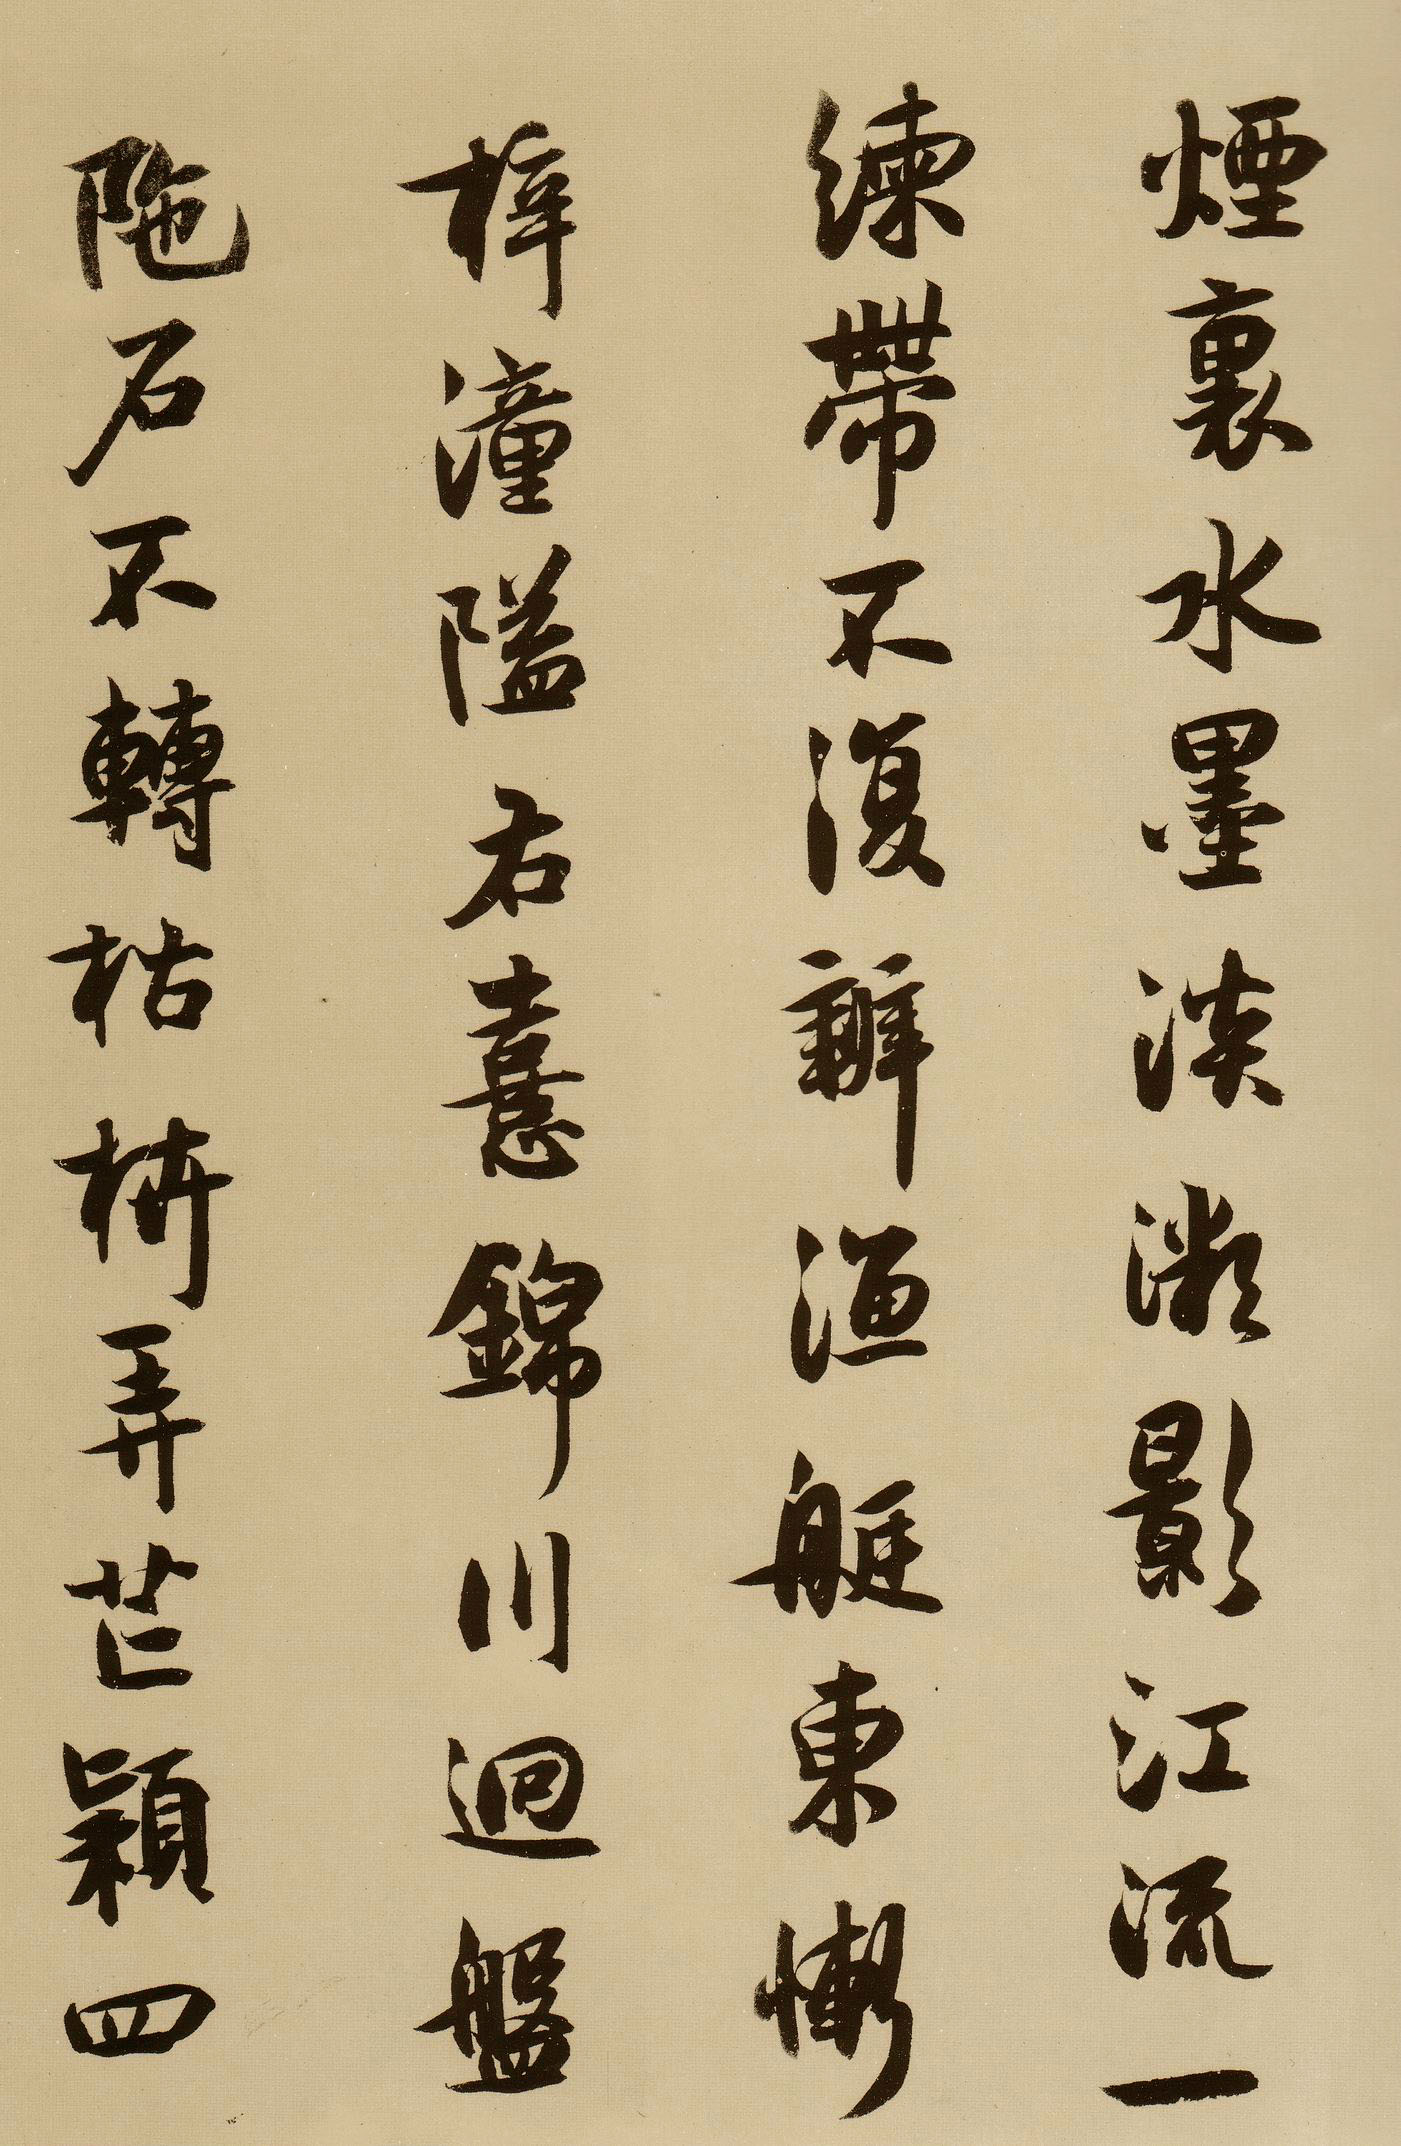 煙裏水墨淡凝影江流一
練帶不復辨漁艇東慚
梓潼隘右憙錦川迴盤
陁石不轉枯枿弄芒穎四